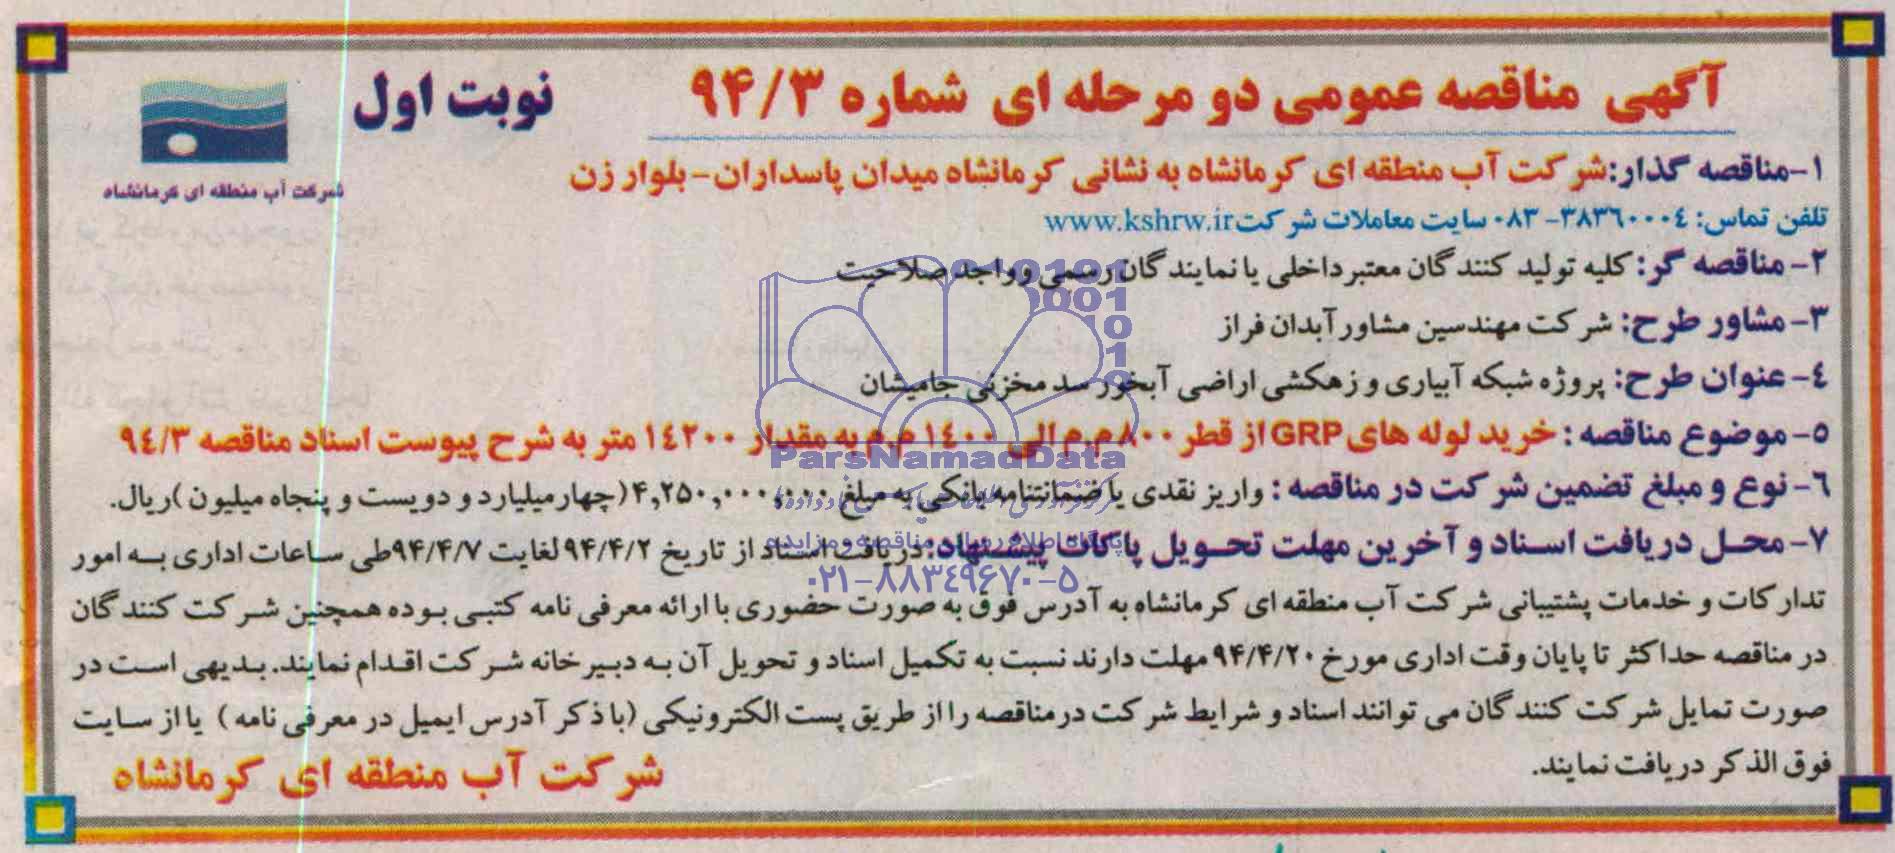 آگهی مناقصه عمومی دو مرحله ای شماره ۹۴/۳
نوبت اول
شرکت آب منطقه ای کرمانشاه
۱-مناقصه گذار:شرکت آب منطقه ای کرمانشاه به نشانی کرمانشاه میدان پاسداران-بلوار زن
تلفن تماس: ۳۸۳٦۰۰۰٤-۰۸۳ سایت معاملات شرکت www.kshrw.ir
۲- مناقصه گر: کلیه تولید کنندگان معتبر داخلی یا نمایندگان رسمی و واجد صلاحیت
۳- مشاور طرح: شرکت مهندسین مشاور آبدان فراز
٤- عنوان طرح: پروژه شبکه آبیاری و زهکشی اراضی آبخور سد مخزنی جامیشان
۵- موضوع مناقصه : خرید لوله های GRP از قطر ۸۰۰ م.م الی ۱٤۰۰ م.م به مقدار ۱٤۲۰۰ متر به شرح پیوست اسناد مناقصه ۹٤/۳
ParsNamadData
٦- نوع و مبلغ تضمین شرکت در مناقصه : واریز نقدی یا ضمانتنامه بانکی به مبلغ ۴,۲۵۰,۰۰۰,۰۰۰(چهار میلیارد و دویست و پنجاه میلیون )ریال.
۷- محل دریافت اسناد و آخرین مهلت تحویل پاکات پیشنهاد: دریافت اسناد از تاریخ ۹۴/۴/۲ لغایت ۹۴/۴/۷طی ساعات اداری به امور
پایگاه اطلاع رسانی مناقصه و مزایده
۰۲۱-۸۸۳٤۹۶۷۰-۵
تدارکات و خدمات پشتیبانی شرکت آب منطقه ای کرمانشاه به آدرس فوق به صورت حضوری با ارائه معرفی نامه کتبی بوده همچنین شرکت کنندگان
در مناقصه حداکثر تا پایان وقت اداری مورخ ۹۴/۴/۲۰ مهلت دارند نسبت به تکمیل اسناد و تحویل آن به دبیرخانه شرکت اقدام نمایند. بدیهی است در
صورت تمایل شرکت کنندگان می توانند اسناد و شرایط شرکت در مناقصه را از طریق پست الکترونیکی (با ذکر آدرس ایمیل در معرفی نامه ) یا از سایت
فوق الذکر دریافت نمایند.
شرکت آب منطقه ای کرمانشاه